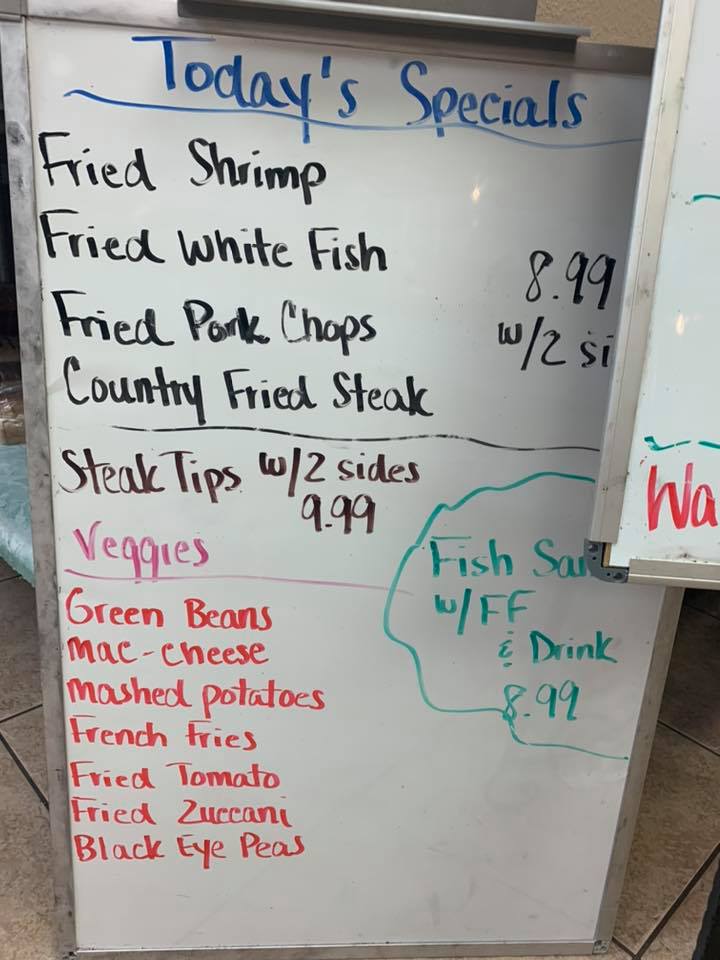 Today's Specials
Fried Shrimp
Fried White Fish
8.99
Fried Pork Chops
w/2 si
Country Fried Steak
Steak Tips w/2 sides
9.99
Veggies
Fish Sa
w/FF
& Drink
8.99
Green Beans
mac-cheese
mashed potatoes
French fries
Fried Tomato
Fried Zuccani
Black Eye Peas
Wa